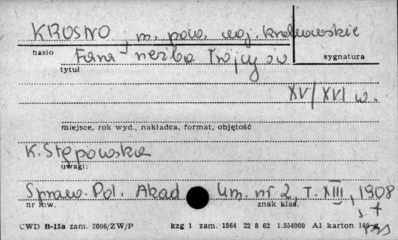 KROSNO m. pow. woj. krakowskie
hasło sygnatura
Fara - rzeźba Trójcy św
tytuł
XV/XVI w.
miejsce, rok wyd., nakładca, format, objętość
K. Stępowska
uwagi:
Spraw. Pol. Akad Um. nr 2, T. XIII, 1908
nr inw. znak klas.
CWD B-15a zam. 2006/ZW/P kzg 1 zam. 1564 22 8 62 1.554000 A1 karton